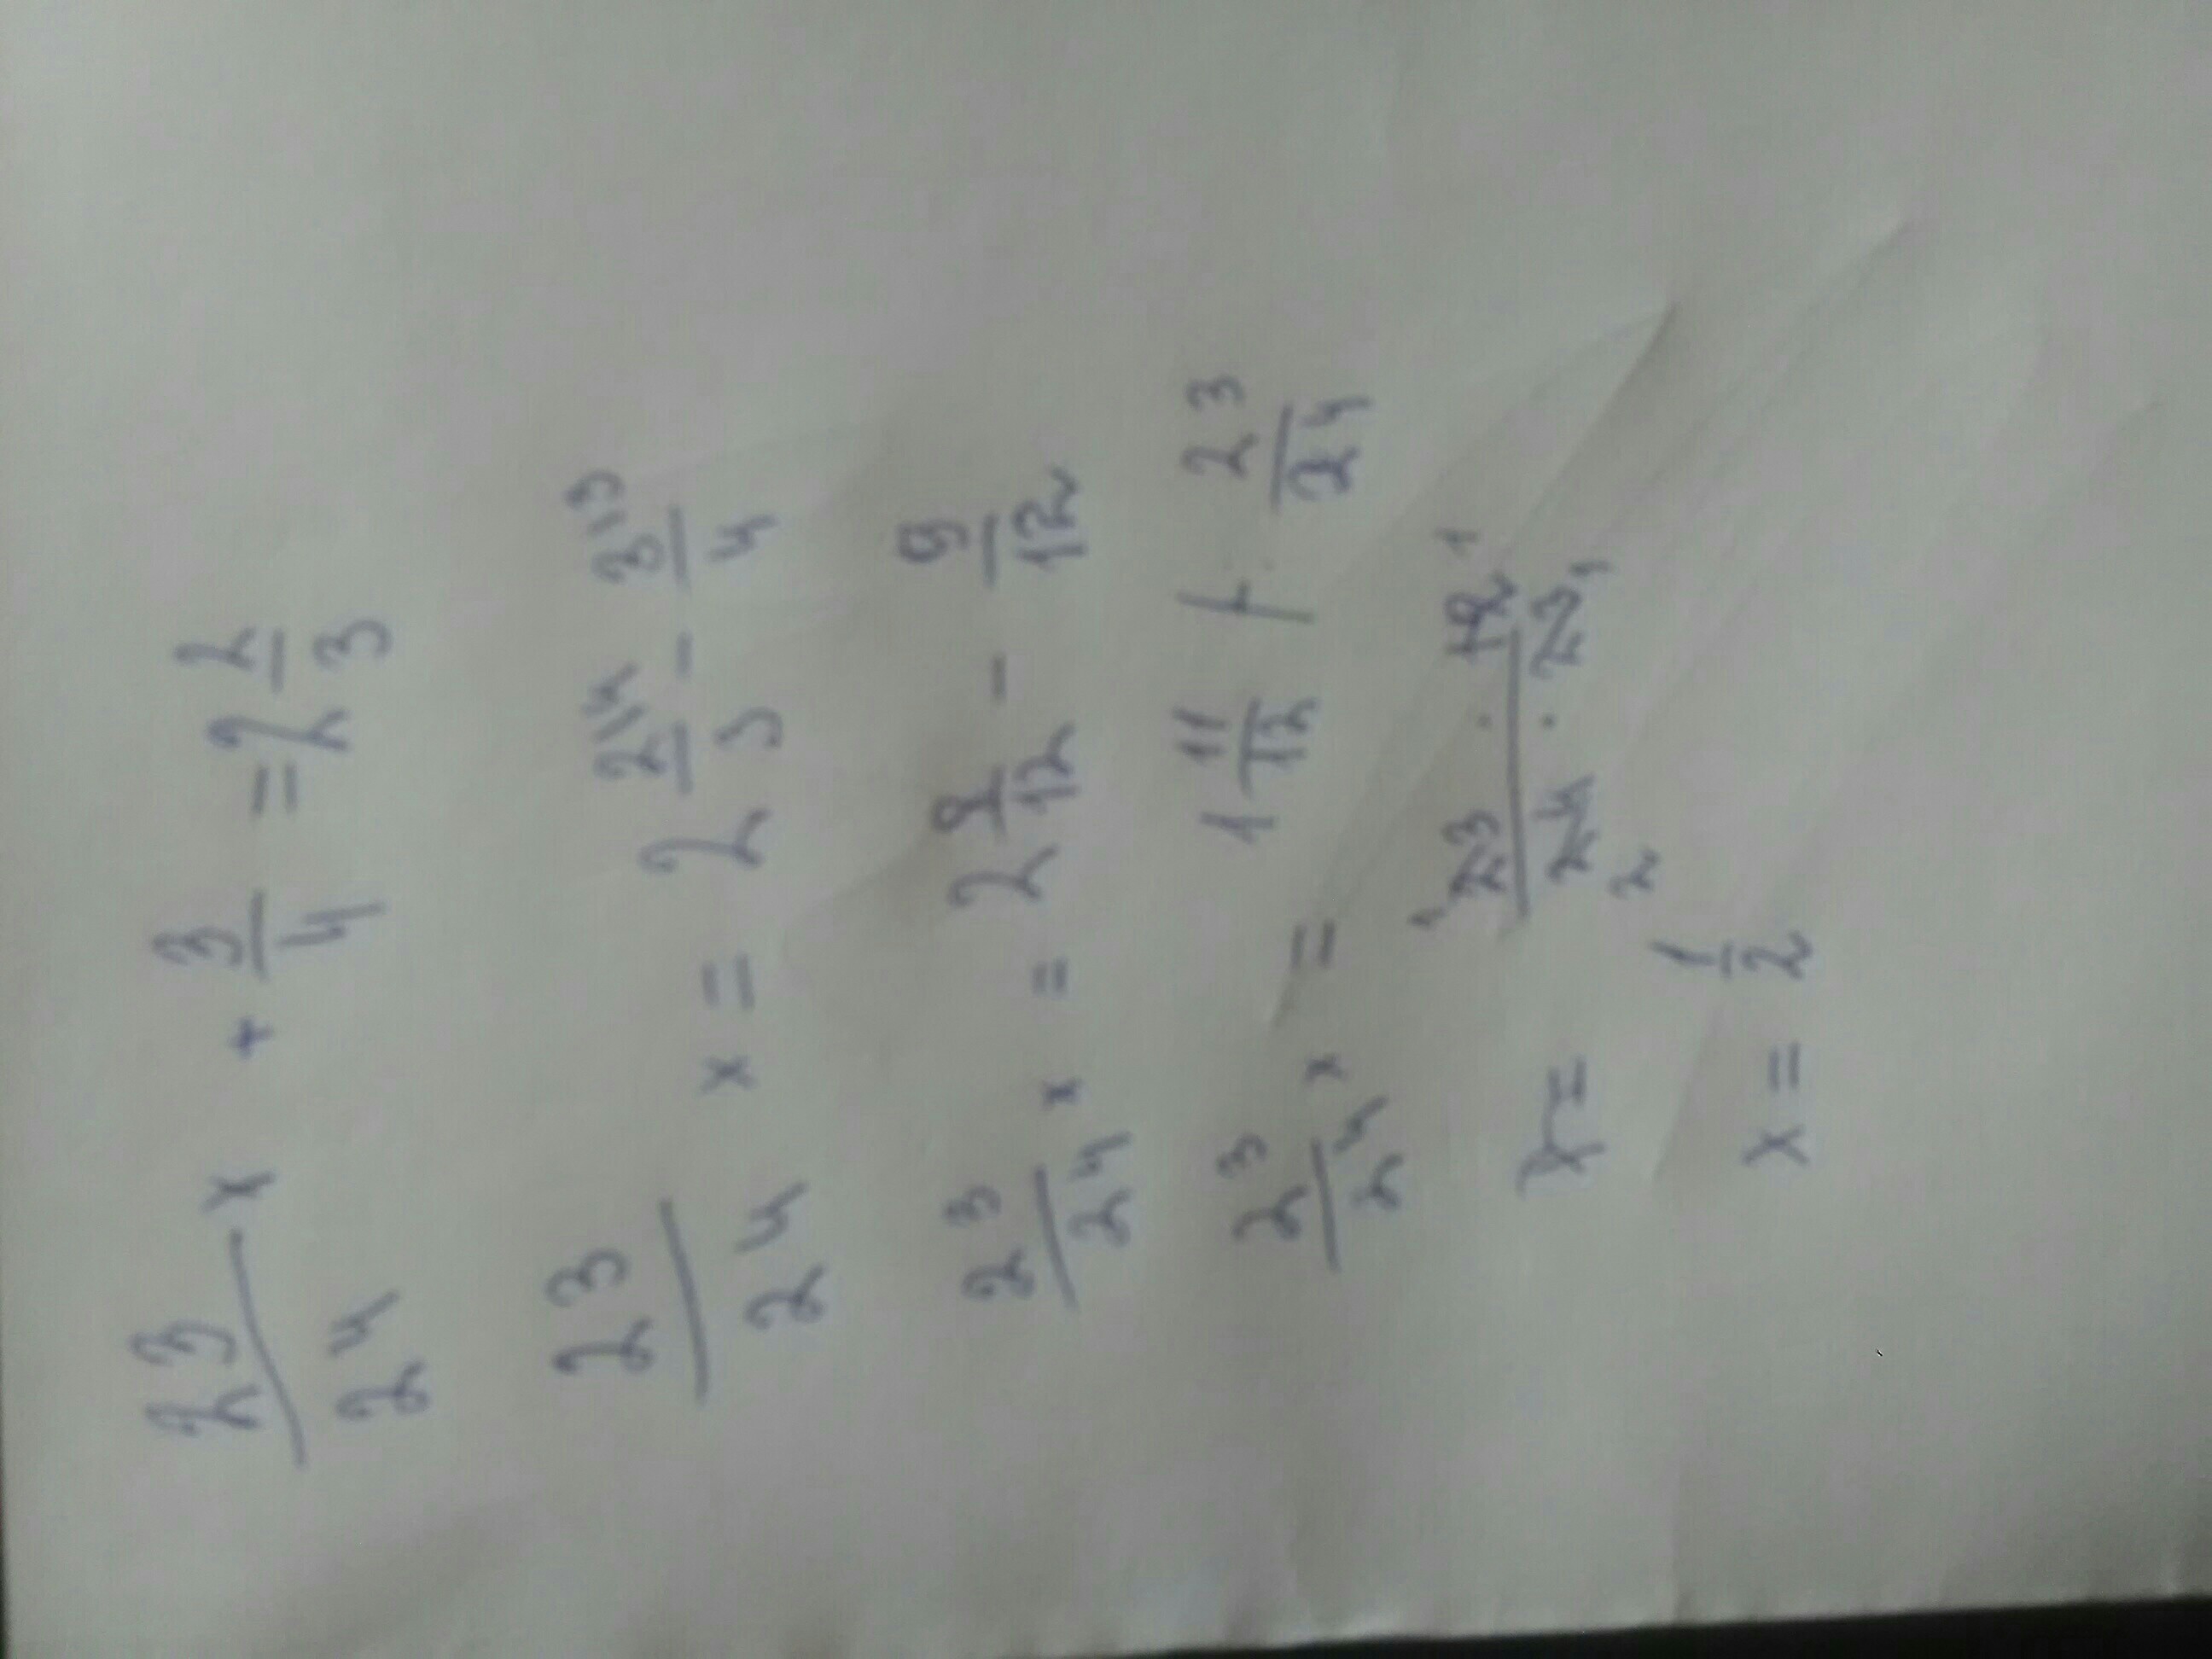 23/24 x + 3/4 = 2 2/3
23/24 x = 2 2/3 |4 - 3/4 |3
23/24 x = 2 8/12 - 9/12
23/24 x = 1 11/12 : 23/24
x = 23 · 12 / 24 · 23
x = 1/2